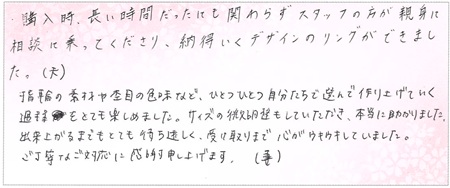 購入時、長い時間だったにも関わらずスタッフの方が親身に
相談に乗ってくださり、納得いくデザインのリングができまし
た。(夫)
指輪の素材や杢目の色味など、ひとつひとつ自分たちで選んで作り上げていく
過程もとても楽しめました。サイズの微調整もしていただき、本当に助かりました。
出来上がるまでもとても待ち遠しく、受け取りまで心がウキウキしていました。
ご丁寧なご対応に感謝申し上げます。(妻)